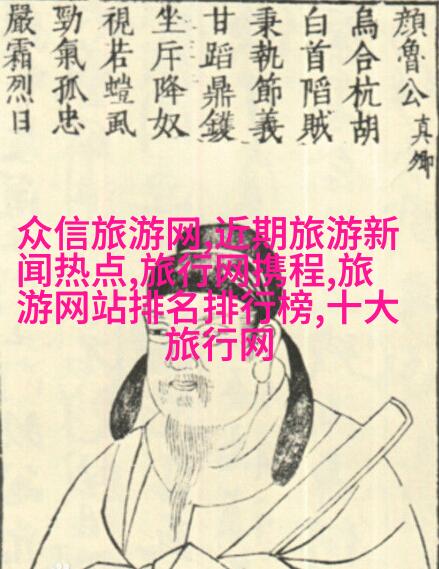 顔魯公真卿
烏合杭胡
白首陷賊
秉執節義
甘蹈鼎鑊
坐斥降奴
視若螘虱
勁氣孤忠
嚴霜烈日
众信旅游网,近期旅游新
闻热点,旅行网携程,旅
游网站排名排行榜,十大
旅行网